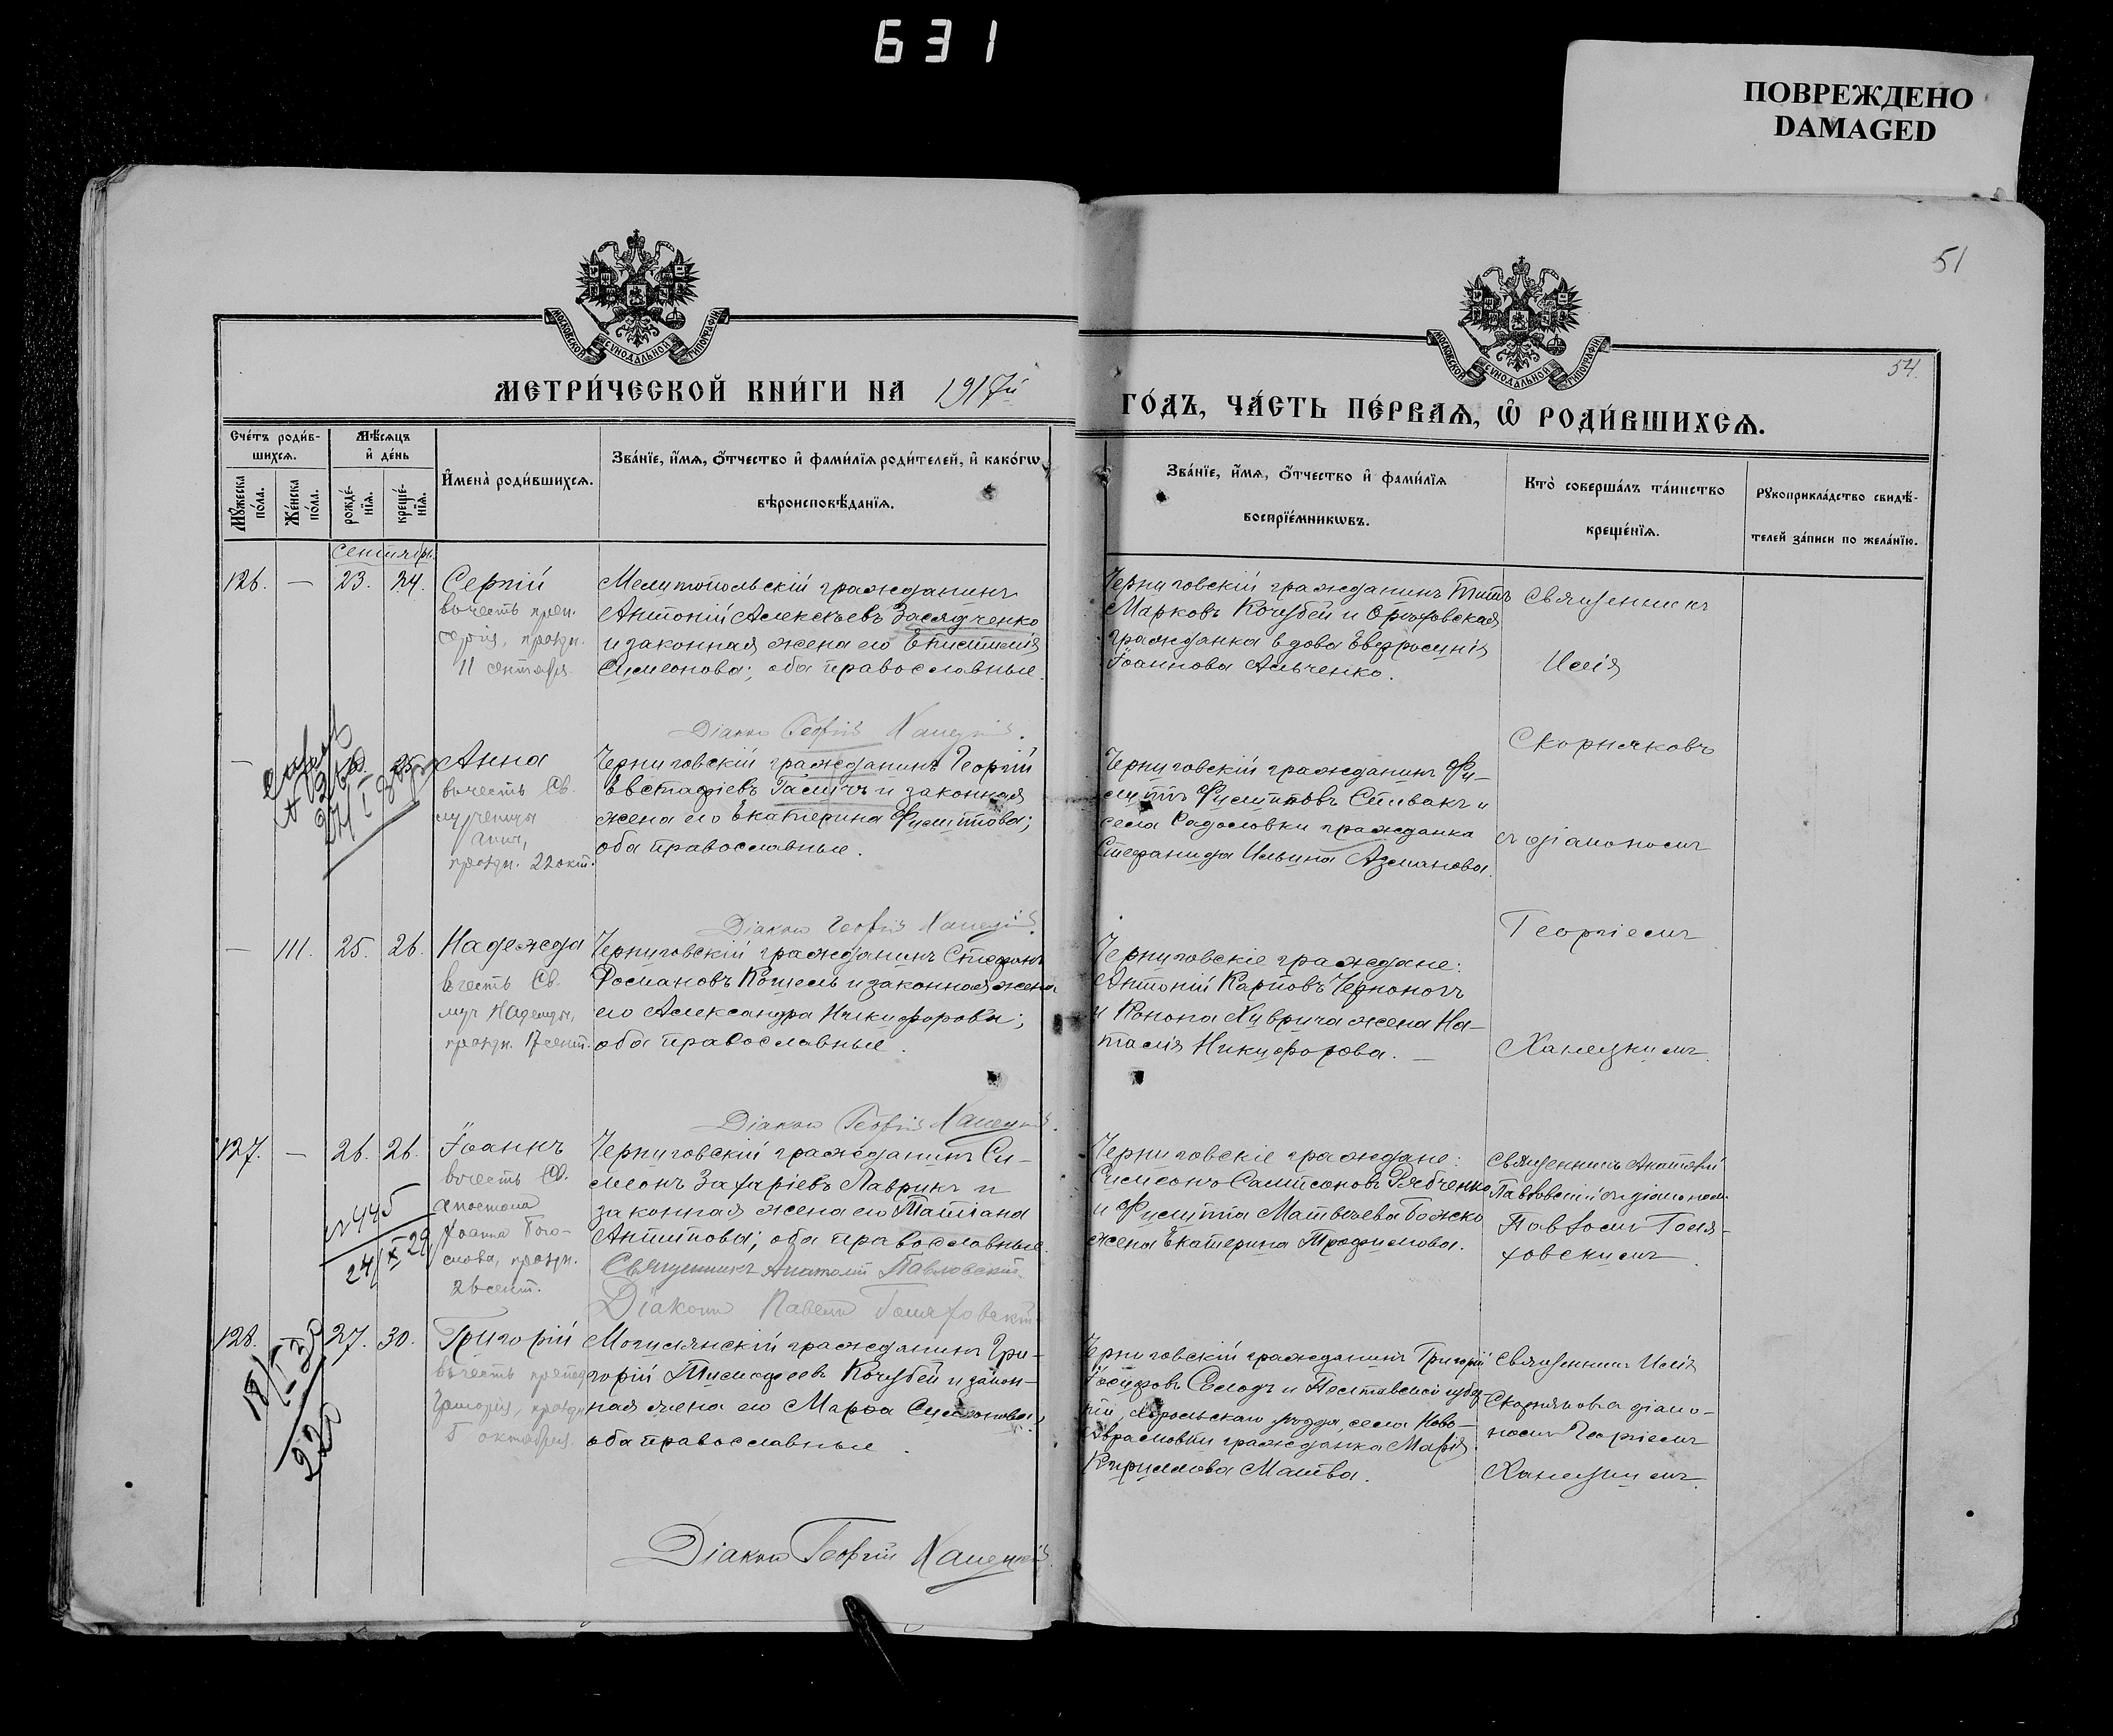 631
ПОВРЕЖДЕНО
DAMAGED
51
54.
МОСКОВСКОЙ СѴНОДАЛЬНОЙ ТИПОГРАФІИ
МОСКОВСКОЙ СѴНОДАЛЬНОЙ ТИПОГРАФІИ
МЕТРИ́ЧЕСКОЙ КНИ́ГИ НА 1917й
ГО́ДЪ, ЧА́СТЬ ПЕ́РВАѦ, Ѡ҆ РОДИ́ВШИХСѦ.
Сче́тъ роди́в-
шихсѧ.
Мѣ́сѧцъ
и҆ де́нь
Мꙋ́жеска по́ла.
Же́нска по́ла.
рожде́-
нїѧ.
креще́-
нїѧ.
И҆мена̀ роди́вшихсѧ.
Зва́нїе, и҆́мѧ, ѻ҆́тчество и҆ фами́лїѧ роди́телей, и҆ како́гѡ
вѣроисповѣ́данїѧ.
Зва́нїе, и҆́мѧ, ѻ҆́тчество и҆ фами́лїѧ
воспрїе́мникѡвъ.
Кто̀ соверша́лъ та́инство
креще́нїѧ.
Рꙋкоприкла́дство свидѣ́-
телей за́писи по жела́нїю.
Сентябрь
126. — 23. 24. Сергій
въ честь преп.
Сергія, праздн.
11 сентября.
Мелитопольскій гражданинъ
Антоній Алексѣевъ Засядченко
и законная жена его Епистимія
Симеонова; оба православные.
Діаконъ Георгій Ханецкій.
Черниговскій гражданинъ Титъ
Марковъ Кочубей и Орловская
гражданка вдова Евфросинія
Іоаннова Ильченко.
Священникъ
Илія
Скорняковъ
съ діакономъ
Георгіемъ
Ханецкимъ.
— 25. Анна
въ честь Св.
мученицы
Анны,
праздн. 22 окт.
Черниговскій гражданинъ Георгій
Евстафіевъ Галичъ и законная
жена его Екатерина Филиппова;
оба православные.
Діаконъ Георгій Ханецкій.
Черниговскій гражданинъ Фи-
липпъ Филипповъ Спивакъ и
села Радоловки гражданка
Стефанида Ильина Азманова.
— 111. 25. 26. Надежда
въ честь Св.
муч. Надежды,
праздн. 17 сент.
Черниговскій гражданинъ Стефанъ
Романовъ Кошель и законная жена
его Александра Никифорова;
оба православные.
Діаконъ Георгій Ханецкій.
Черниговскіе граждане:
Антоній Карповъ Чернопогъ
и Конона Хиврича жена На-
талія Никифорова. —
127. — 26. 26. Іоаннъ
въ честь Св.
Апостола
Іоанна Бого-
слова, праздн.
26 сент.
№ 445
24/XI 29
Черниговскій гражданинъ Си-
меонъ Захаріевъ Лаврикъ и
законная жена его Татіана
Антипова; оба православные.
Священникъ Анатолій Павловскій.
Діаконъ Павелъ Голяховскій.
Черниговскіе граждане:
Симеонъ Самсоновъ Рябченко
и Филиппа Матвѣева Божко
жена Екатерина Трофимова.
Священникъ Анатолій
Павловскій съ діакономъ
Павломъ Голя-
ховскимъ.
128. 27. 30. Григорій
въ честь преподобн.
Григорія, праздн.
5 октября.
18/I 30
220
Могилянскій гражданинъ Гри-
горій Тимофеевъ Кочубей и закон-
ная жена его Марфа Симеонова;
оба православные.
Діаконъ Георгій Ханецкій.
Черниговскій гражданинъ Григорій
Іосифовъ Солодъ и Полтавской губер-
ніи, Хорольскаго уѣзда, села Ново-
Аврамовки гражданка Марія
Кириллова Матва.
Священникъ Илія
Скорняковъ діако-
номъ Георгіемъ
Ханецкимъ.